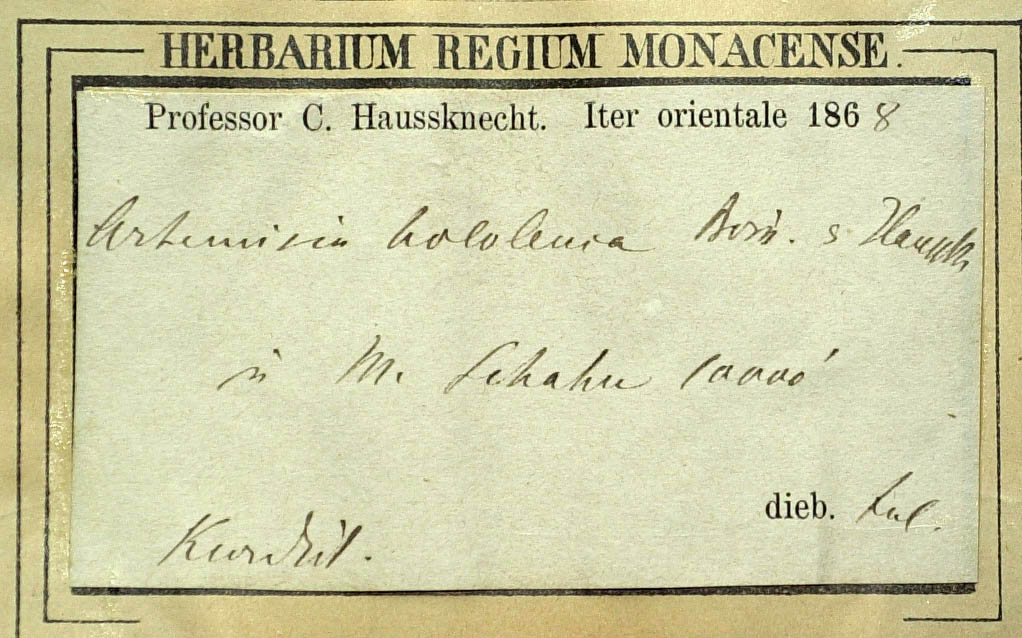 HERBARIUM REGIUM MONACENSE.
Professor C. Haussknecht. Iter orientale 1868
Artemisia hololeuca Boiss. & Haussk
in M. Schahu 10000'
dieb. Jul.
Kurdist.